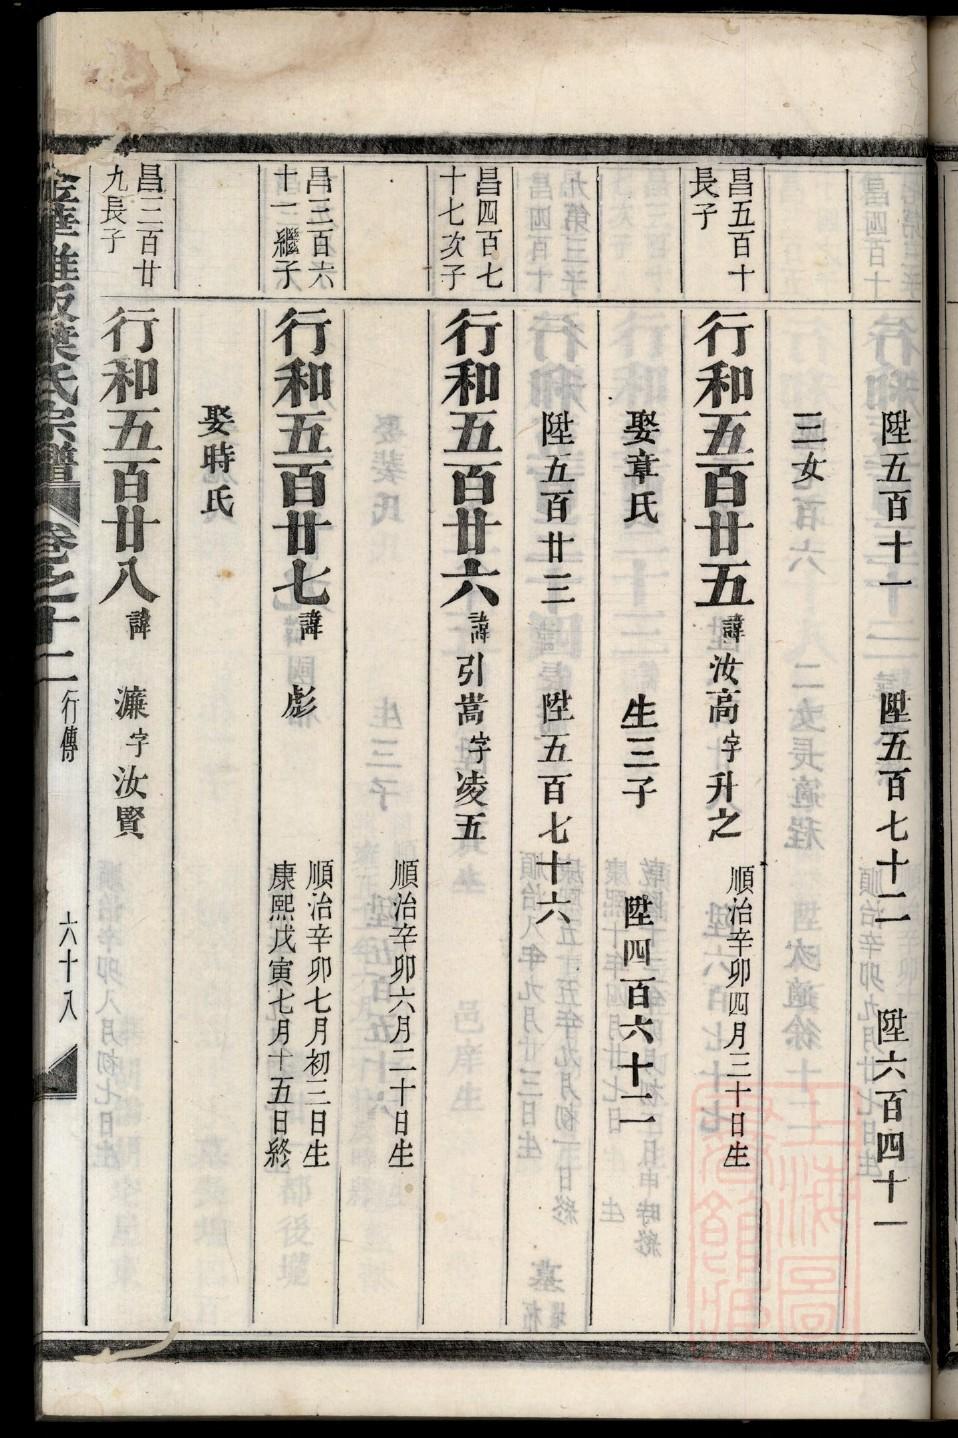 陞五百十一 陞五百七十二 陞六百四十一
三女
昌五百十
長子
行和五百廿五 諱汝高字升之 順治辛卯四月三十日生
娶章氏 生三子 陞四百六十二
陞五百廿三 陞五百七十六
昌四百七
十七次子
行和五百廿六 諱引嵩字凌五
順治辛卯六月二十日生
昌三百六
十一繼子
行和五百廿七 諱彪 順治辛卯七月初三日生
康熙戊寅七月十五日終
娶時氏
昌三百廿
九長子
行和五百廿八 諱濂字汝賢
葉氏宗譜 卷之十二 行傳 六十八